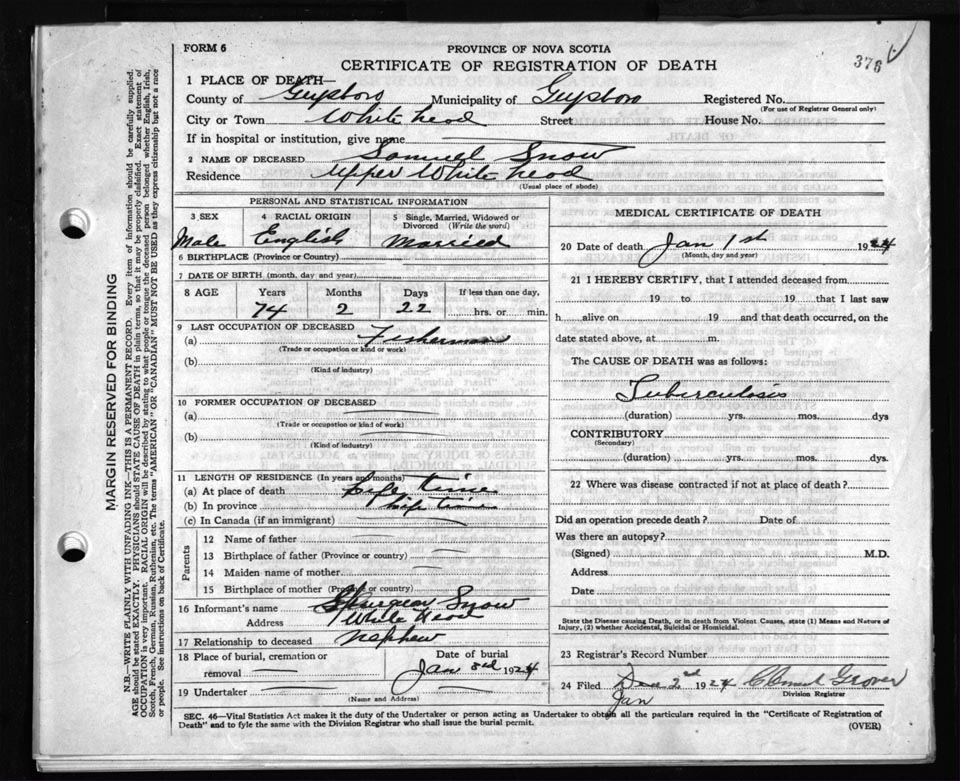 FORM 6
PROVINCE OF NOVA SCOTIA
CERTIFICATE OF REGISTRATION OF DEATH
376
1 PLACE OF DEATH—
County of Guysboro Municipality of Guysboro Registered No.
(For use of Registrar General only)
City or Town White head Street House No.
If in hospital or institution, give name
2 NAME OF DECEASED Samuel Snow
Residence Upper White head
(Usual place of abode)
PERSONAL AND STATISTICAL INFORMATION
3 SEX 4 RACIAL ORIGIN 5 Single, Married, Widowed or Divorced (Write the word)
Male English Married
6 BIRTHPLACE (Province or Country)
7 DATE OF BIRTH (month, day and year)
8 AGE Years Months Days If less than one day,
74 2 22 hrs. or min.
9 LAST OCCUPATION OF DECEASED
(a) Fisherman
(Trade or occupation or kind or work)
(b)
(Kind of industry)
10 FORMER OCCUPATION OF DECEASED
(a)
(Trade or occupation or kind of work)
(b)
(Kind of industry)
11 LENGTH OF RESIDENCE (In years and months)
(a) At place of death Life time
(b) In province Life time
(c) In Canada (if an immigrant)
Parents
12 Name of father
13 Birthplace of father (Province or country)
14 Maiden name of mother
15 Birthplace of mother (Province or country)
16 Informant's name Snow
Address White Head
17 Relationship to deceased Nephew
18 Place of burial, cremation or removal
Date of burial
Jan 3rd 1924
19 Undertaker
(Name and Address)
MEDICAL CERTIFICATE OF DEATH
20 Date of death Jan 1st 1924
(Month, day and year)
21 I HEREBY CERTIFY, that I attended deceased from
19 to 19 that I last saw
h alive on 19 and that death occurred, on the
date stated above, at m.
The CAUSE OF DEATH was as follows:
Tuberculosis
(duration) yrs. mos. dys
CONTRIBUTORY
(Secondary)
(duration) yrs. mos. dys.
22 Where was disease contracted if not at place of death?
Did an operation precede death? Date of
Was there an autopsy?
(Signed) M.D.
Address
Date
State the Disease causing Death, or in death from Violent Causes, state (1) Means and Nature of
Injury, (2) whether Accidental, Suicidal or Homicidal.
23 Registrar's Record Number
24 Filed Dec 2nd 1924 Clement Grover
Jan
Division Registrar
SEC. 46—Vital Statistics Act makes it the duty of the Undertaker or person acting as Undertaker to obtain all the particulars required in the "Certificate of Registration of
Death" and to fyle the same with the Division Registrar who shall issue the burial permit.
(OVER)
MARGIN RESERVED FOR BINDING
N.B.—WRITE PLAINLY WITH UNFADING INK—THIS IS A PERMANENT RECORD. Every item of information should be carefully supplied.
AGE should be stated EXACTLY. PHYSICIANS should STATE CAUSE OF DEATH in plain terms, so that it may be properly classified. Exact statement of
OCCUPATION is very important. RACIAL ORIGIN will be described by stating to what people or tongue the deceased person belonged whether English, Irish,
Scotch, French, German, Russian, Ruthenian, etc. The terms "AMERICAN" OR "CANADIAN" MUST NOT BE USED as they express citizenship but not a race
or people. See instructions on back of Certificate.